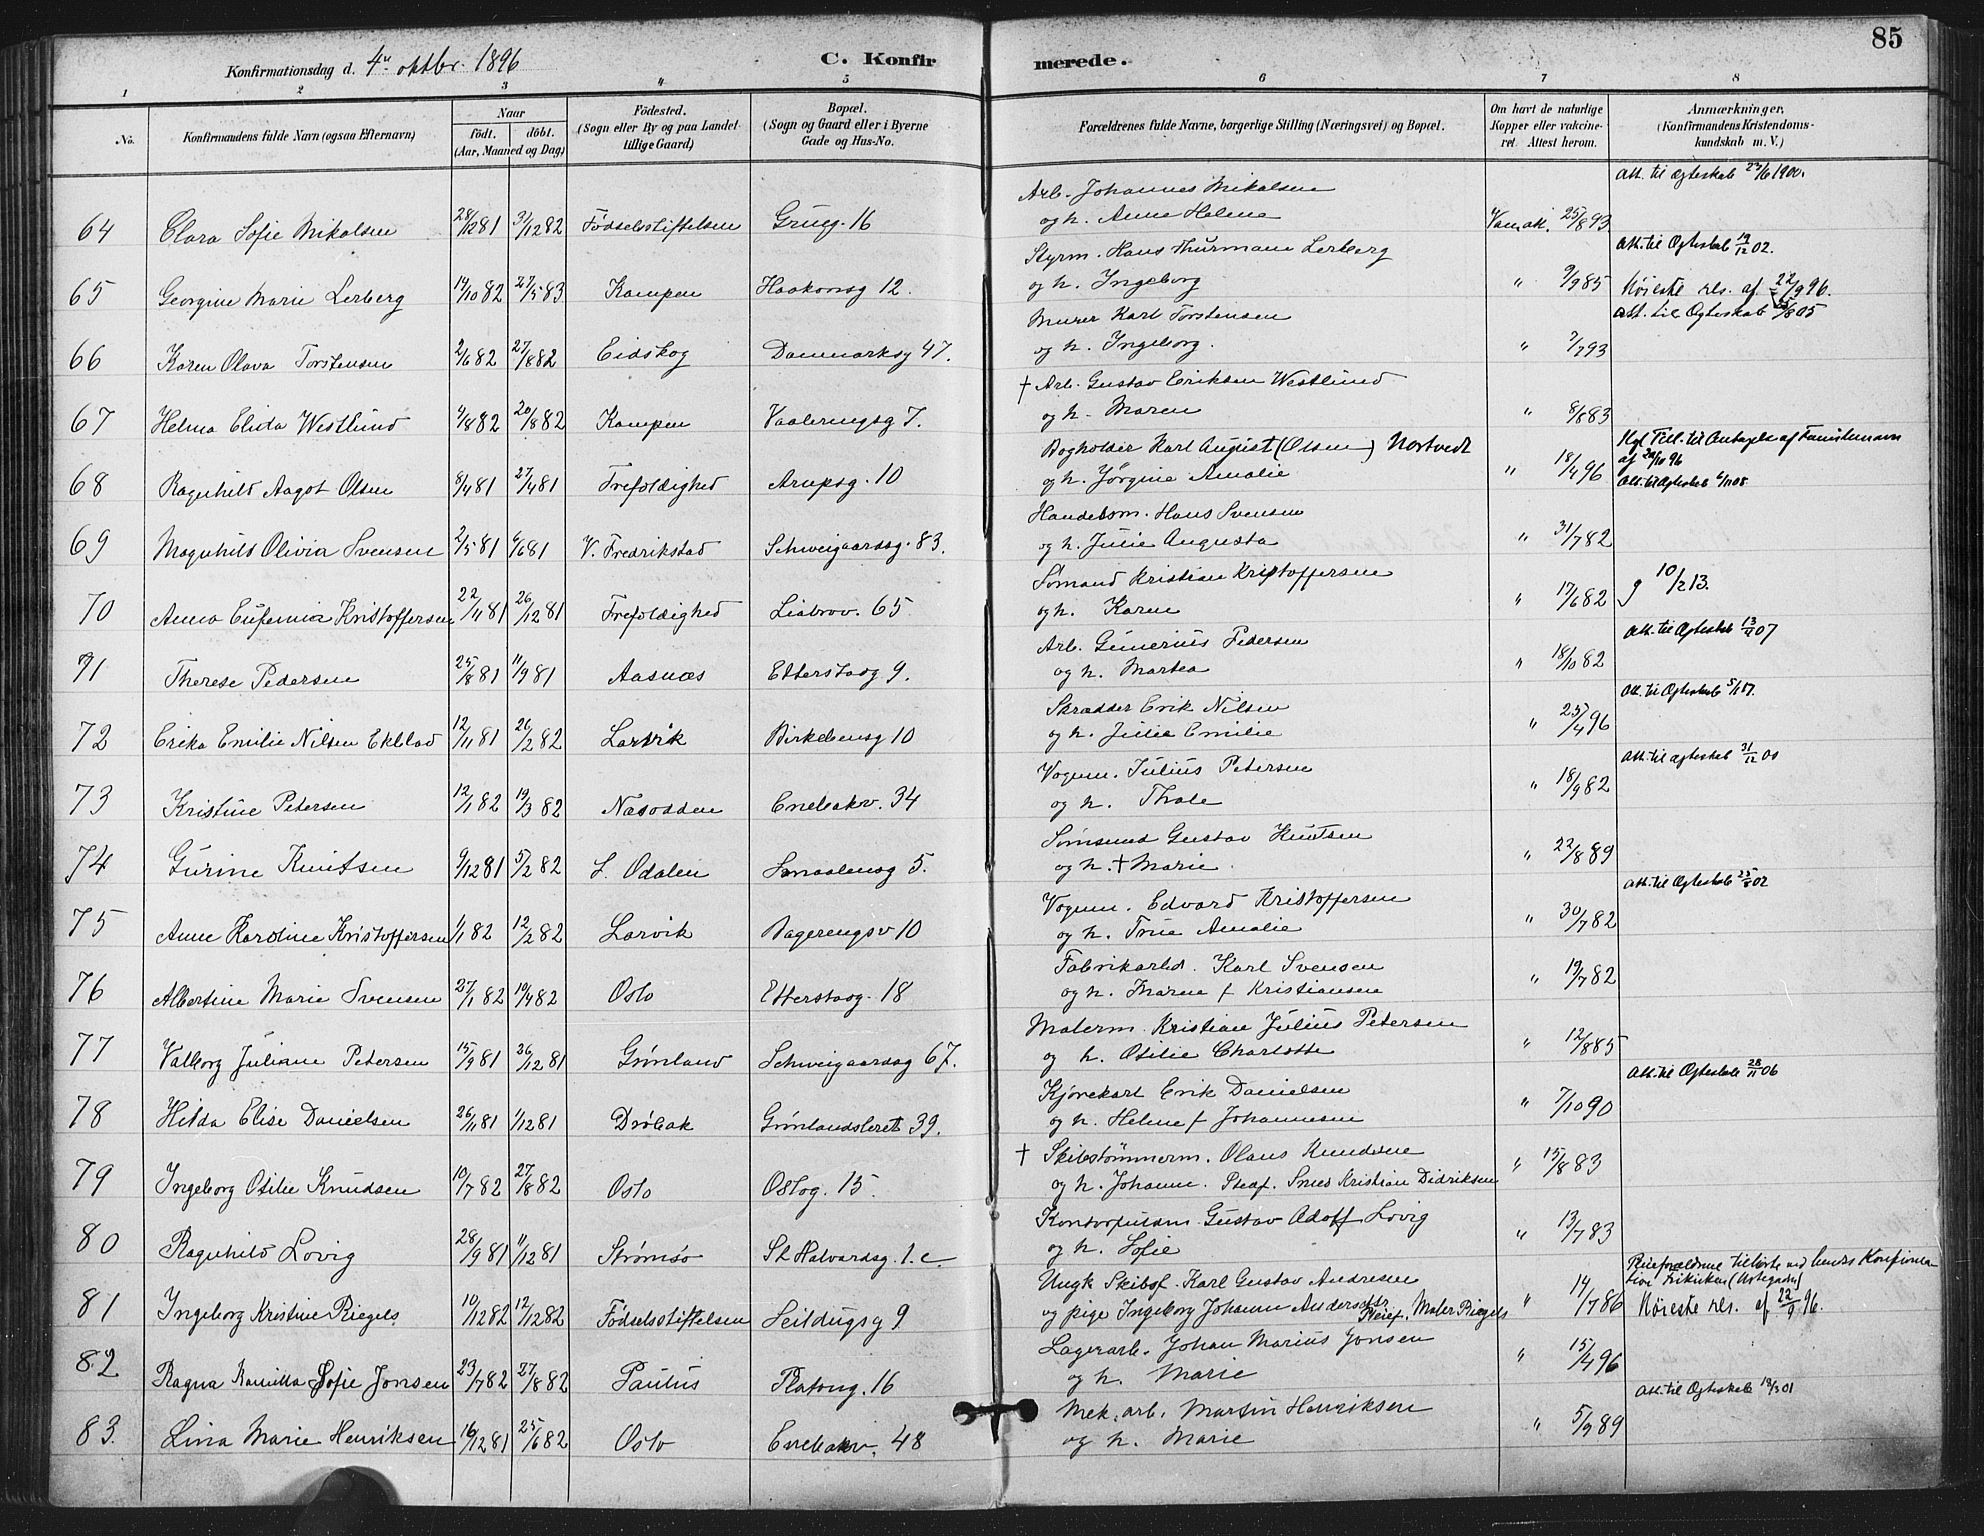 85
Konfirmationsdag d. 4de oktbr. 1896 C. Konfirmerede.
1 2 3 4 5 6 7 8
No. Konfirmandens fulde Navn (ogsaa Efternavn) Naar födt. döbt. (Aar, Maaned og Dag) Födested. (Sogn eller By og paa Landet tillige Gaard) Bopæl. (Sogn og Gaard eller i Byerne Gade og Hus-No. Forældrenes fulde Navne, borgerlige Stilling (Næringsvei) og Bopæl. Om havt de naturlige Kopper eller vakcineret. Attest herom. Anmærkninger. (Konfirmandens Kristendomskundskab m. V.)
Arb. Johannes Mikalsen Att. til Ægteskab 23/6 1900.
64 Clara Sofie Mikalsen 28/12 81 31/12 82 Födselsstiftelsen Grueg. 16 og h. Anne Helene 25/8 93
Styrm. Hans Thurmann Lerberg Att. til Ægteskab 19/12 02.
65 Georgine Marie Lerberg 14/10 82 27/5 83 Kampen Haakonsg 12. og h. Ingeborg " 9/9 85 Höieste res. af 22/9 96.
Murer Karl Torstensen Att. til Ægteskab 05
66 Karen Olava Torstensen 2/6 82 27/8 82 Eidskog Danmarksg 47. og h. Ingeborg. " 7/7 93
† Arb. Gustav Eriksen Westlund
67 Helma Elida Westlund 9/8 82 20/8 82 Kampen Vaalerengsg 7. og h. Maren " 8/8 83
Bogholder Karl August (Olsen) Nortvedt Kgl Till. til Antagelse af Familienavn af 20/10 96
68 Ragnhild Aagot Olsen 8/4 81 27/4 81 Trefoldighed Arupsg. 10 og h. Jörgine Amalie " 18/4 96 Att. til Ægteskab 6/11 08.
Handelsm. Hans Svensen
69 Magnhild Olivia Svensen 2/5 81 6/6 81 V. Fredrikstad Schweigaardsg. 83. og h. Julie Augusta " 31/7 82
Sömand Kristian Kristoffersen
70 Anna Eufemia Kristoffersen 22/11 81 26/12 81 Trefoldighed Liabrov. 65 og h. Karen " 17/6 82 g 10/2 13.
Arb. Gunerius Pedersen Att. til Ægteskab 13/9 07
71 Therese Pedersen 25/8 81 11/9 81 Aasnæs Etterstadg 9. og h. Martea " 18/10 82
Skrædder Erik Nilsen Att. til Ægteskab 5/1 07.
72 Erika Emilie Nilsen Ekblad 12/11 81 26/2 82 Larvik Birkebeinsg 10 og h. Julie Emilie " 25/4 96
Vognm. Julius Petersen Att. til ægteskab 31/12 00
73 Kristine Petersen 12/1 82 19/3 82 Næsodden Enebakv. 34 og h. Thale " 18/9 82
Gustav Knutsen
74 Gurine Knutsen 9/12 81 5/2 82 S. Odalen Smaalensg 5. og h. † Marie. " 22/8 89
Vognm. Edvard Kristoffersen Att. til Ægteskab 25/8 02
75 Anne Karoline Kristoffersen 1/1 82 12/2 82 Larvik Bagerengsv 10 og h. Trine Amalie " 30/7 82
Fabrikarbd. Karl Svensen
76 Albertine Marie Svensen 27/1 82 19/4 82 Oslo Etterstadg. 18 og h. Maren f Kristiansen " 19/7 82
Malerm. Kristian Julius Petersen
77 Valborg Juliane Petersen 15/9 81 26/12 81 Grönland Schweigaardsg 67. og h. Otilie Charlotte " 12/8 85
Kjörekarl Erik Danielsen Att. til Ægteskab 28/11 06
78 Hilda Elise Danielsen 26/11 81 1/12 81 Dröbak Grönlandsleret 39. og h. Helene f Johannesen " 7/10 90
† Skibstömmerm. Olaus Knudsen
79 Ingeborg Otilie Knudsen 10/7 82 27/8 82 Oslo Oslog. 15. og h. Johanne. Pleaf. Smed Kristian Didriksen " 13/8 83
Gustav Adolf Lovig
80 Ragnhild Lovig 28/9 81 11/12 81 Strömsö St Halvardsg. 1. c. og h. Sofie " 13/7 83
Ungk Skibsf. Karl Gustav Andresen Pleieforældrene ved hendes Konfirmation
81 Ingeborg Kristine Riegels 10/12 82 17/12 82 Födselsstiftelsen Seildugsg 9 og pige Ingeborg Johanne Andersdtr Pleief. Maler Riegels " 14/7 86 Höieste res. af 22/9 96.
Lagerarb. Johan Marius Jonsen
82 Ragna Kamilla Sofie Jonsen 23/7 82 27/8 82 Paulus Platoug. 16 og h. Marie " 15/4 96
Mek. arb. Martin Henriksen Att. til Ægteskab 01
83. Lina Marie Henriksen 16/12 81 25/6 82 Oslo Enebakv. 48 og h. Marie " 5/9 89